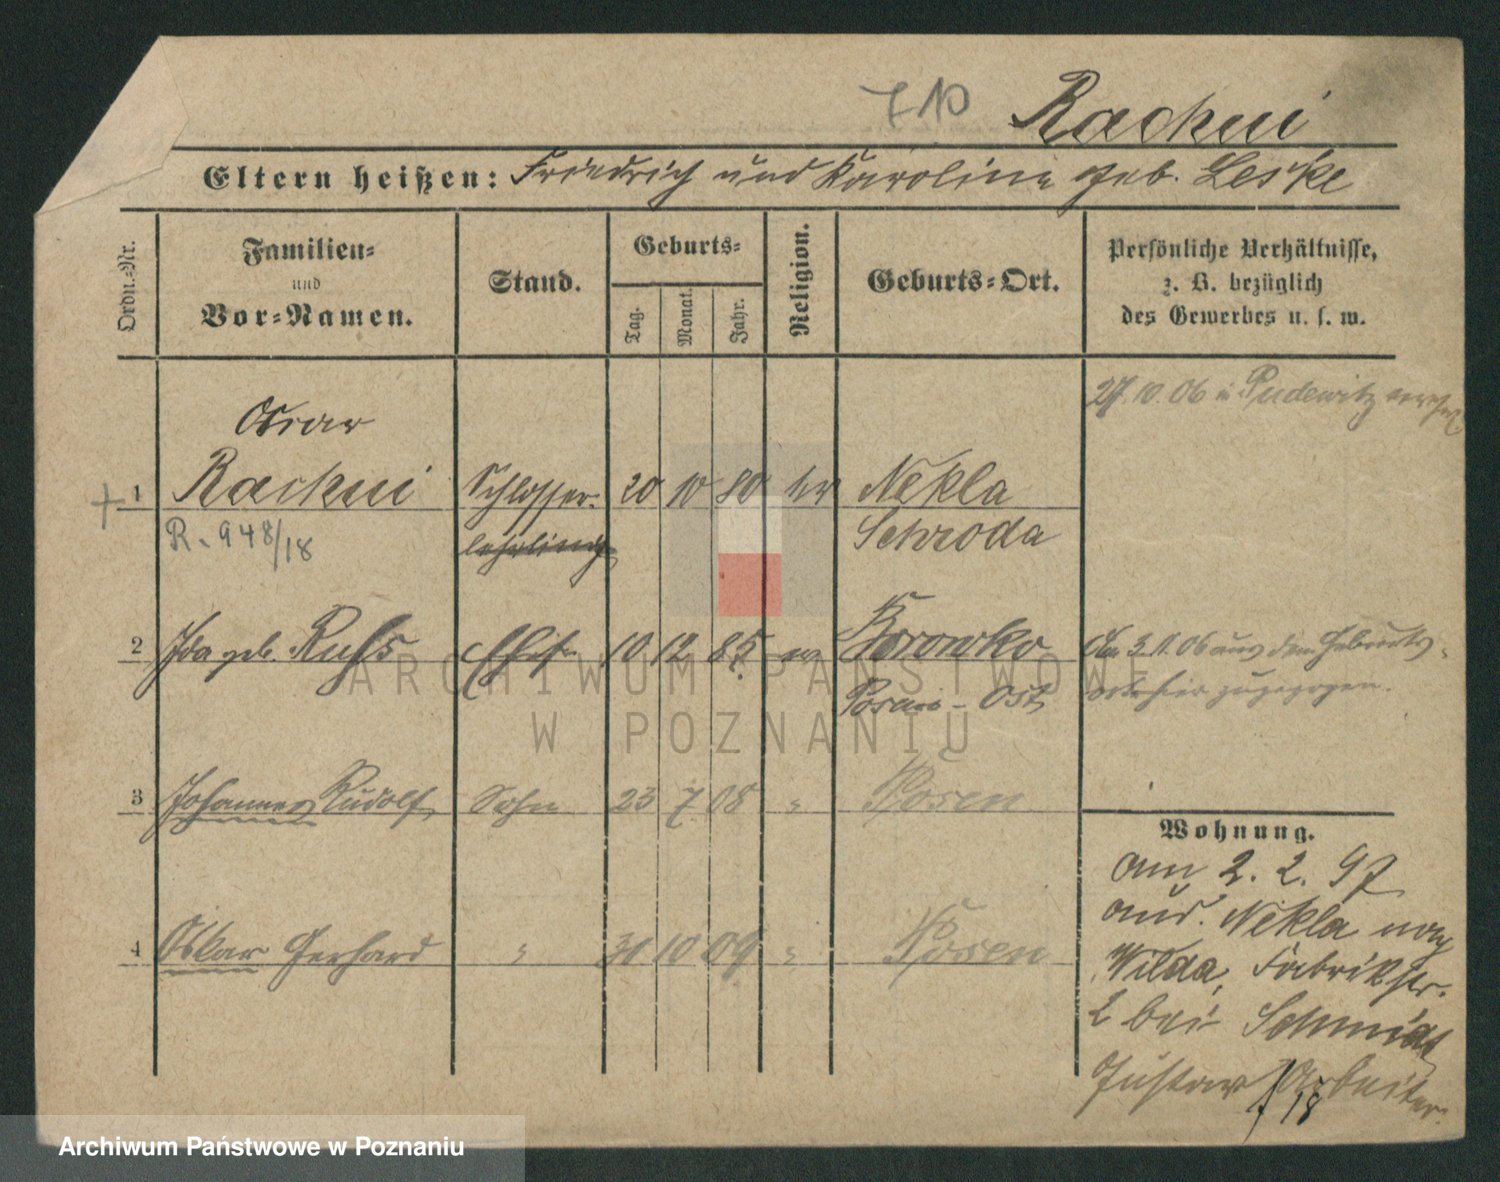 710 Rackui
Eltern heißen: Friedrich und Karoline geb. Leske
Ordn.-Nr.
Familien-
und
Vor-Namen.
Stand.
Geburts-
Tag.
Monat.
Jahr.
Religion.
Geburts-Ort.
Persönliche Verhältnisse,
z. B. bezüglich
des Gewerbes u. s. w.
27.10.06 in Pudewitz
Oskar
1 Rackui Schlosser- 20 10 80 Nekla
R. 948/18 lehrling Schroda
2 Ida geb. Ruhs Ehefr 10 12 85 ev Borowko Am 3.11.06 aus dem Geburts-
Posen-Ost orte hier zugezogen.
3 Johannes Rudolf Sohn 23 7 08 " Posen
4 Oskar Gerhard " 30 10 09 " Posen
Wohnung.
am 2. 2. 97
aus Nekla nach
Wilda, Fabrikstr.
2 bei Schmidt
Gustav Arbeiter.
18
ARCHIWUM PAŃSTWOWE
W POZNANIU
Archiwum Państwowe w Poznaniu